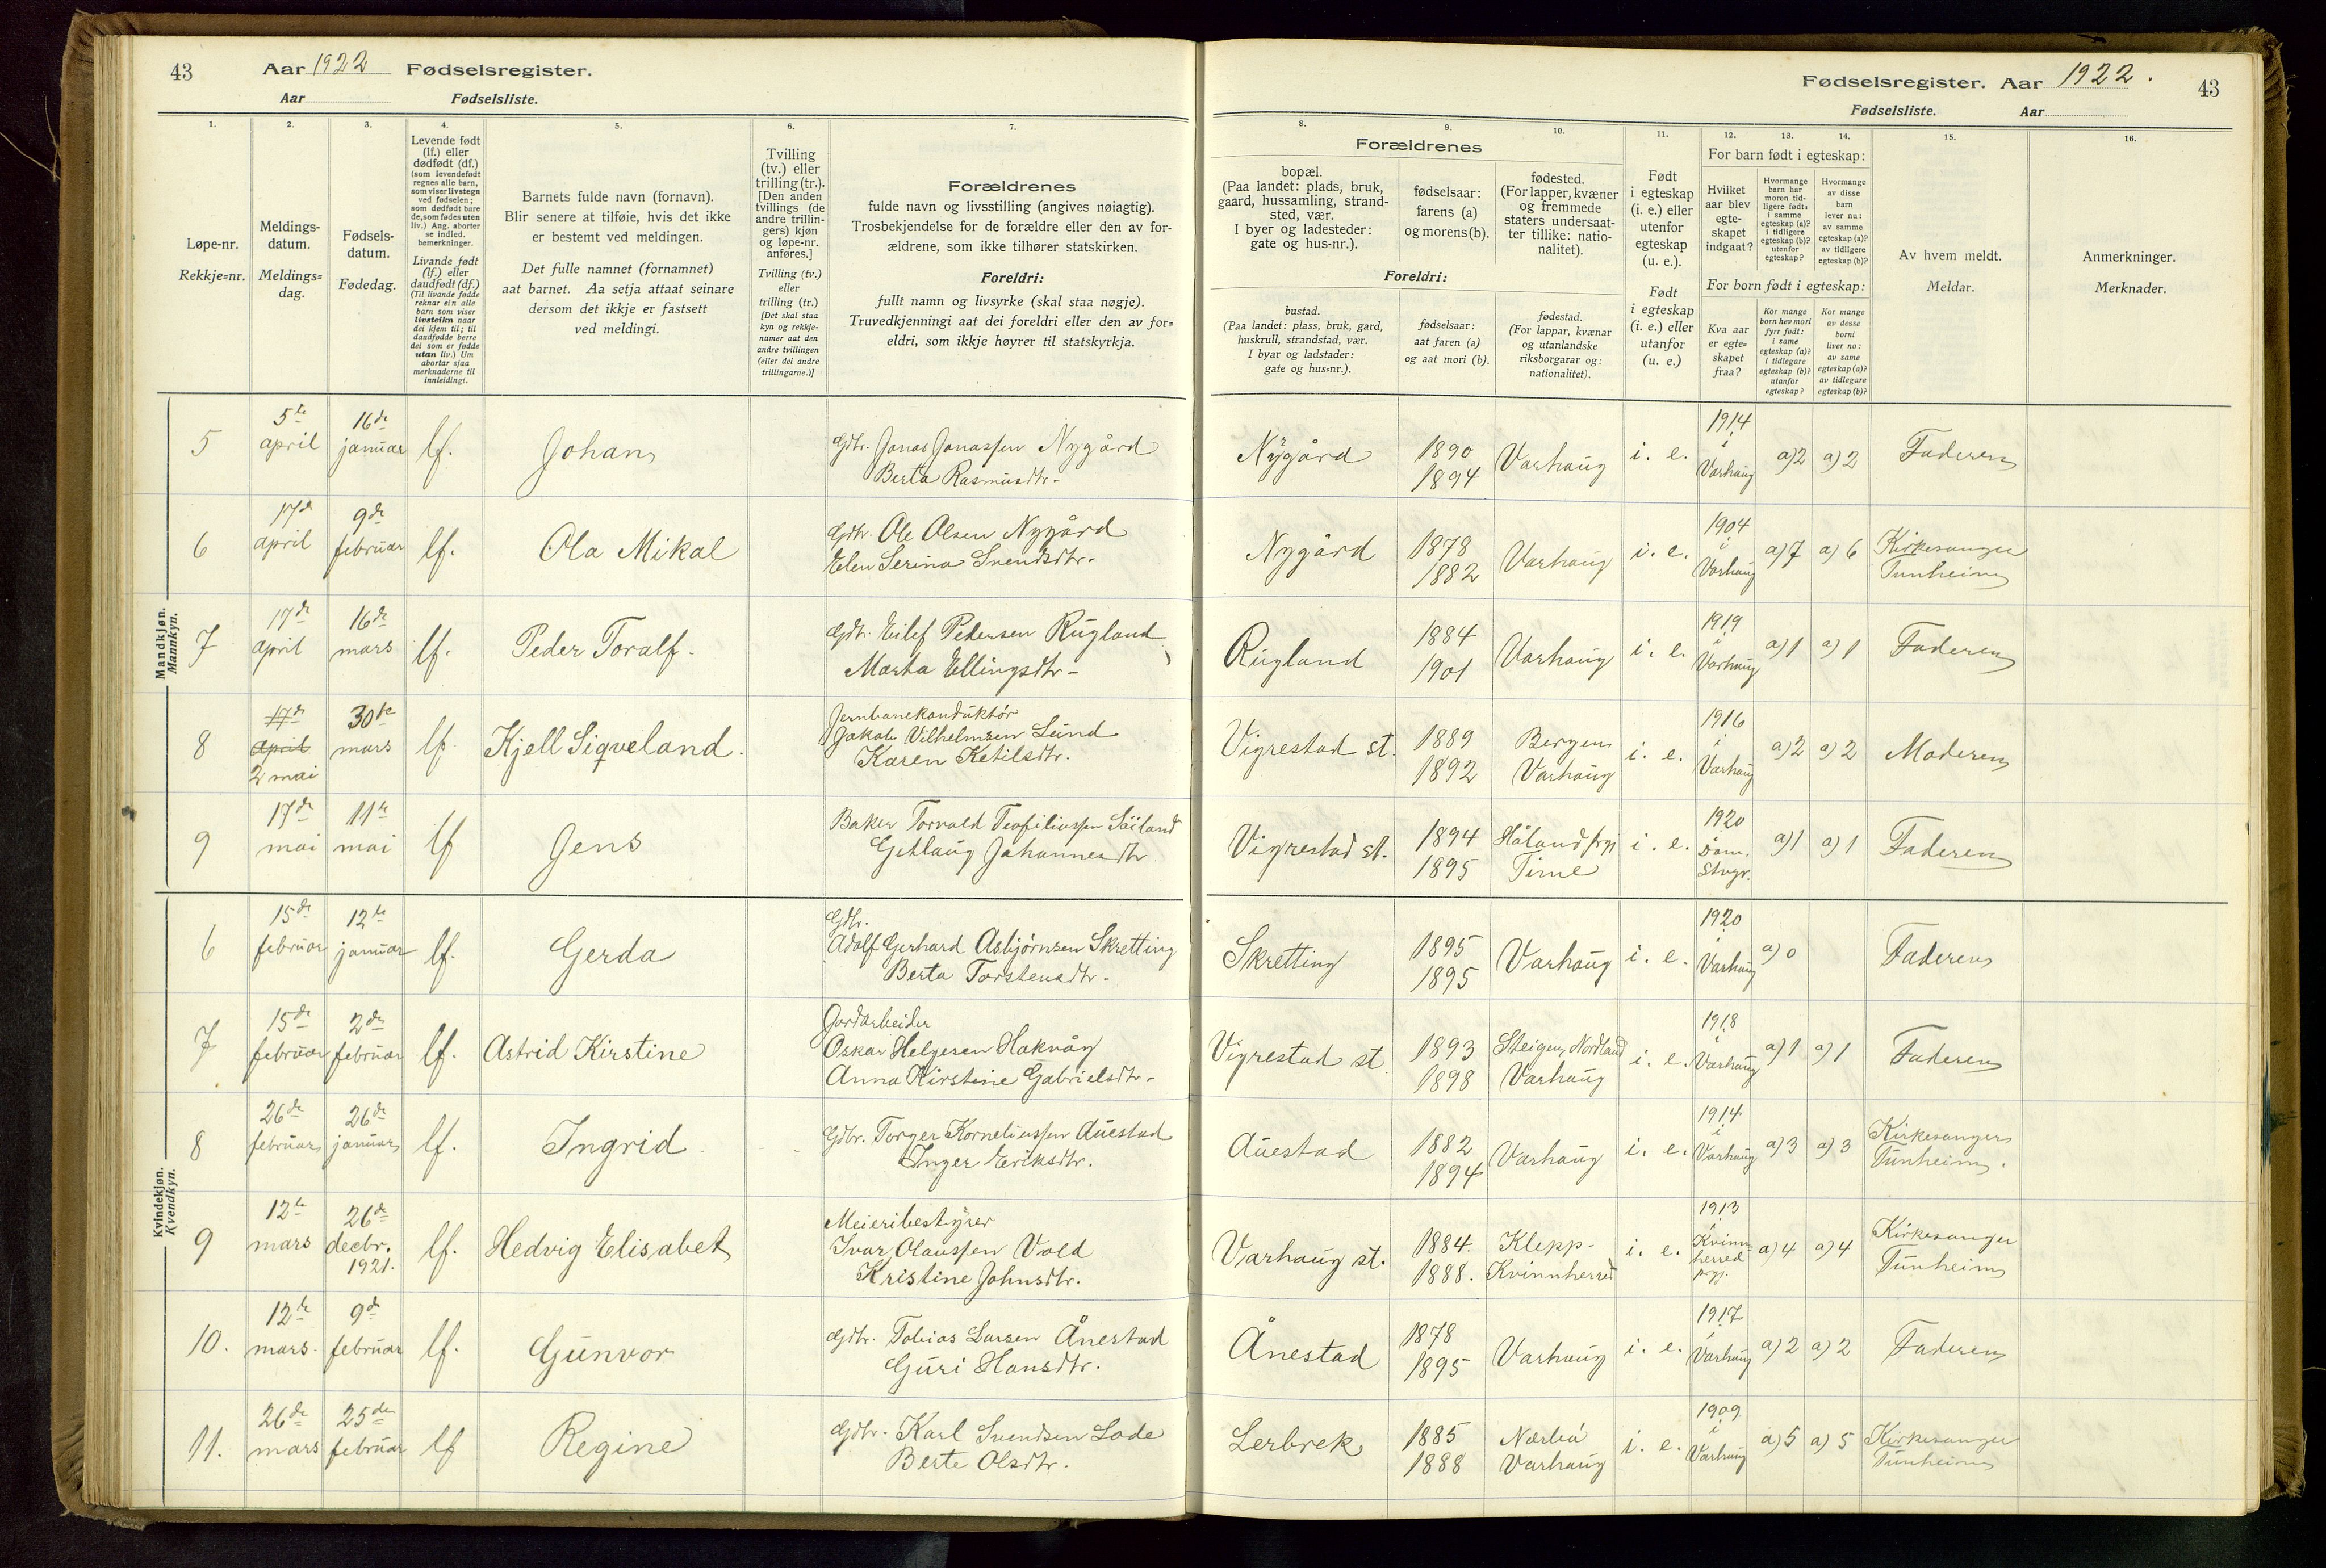 43 Aar 1922 Fødselsregister.
Aar Fødselsliste.
Fødselsregister. Aar 1922. 43
Fødselsliste. Aar
1. 2. 3. 4. 5. 6. 7. 8. 9. 10. 11. 12. 13. 14. 15. 16.
Løpe-nr.
Rekkje-nr.
Meldings-
datum.
Meldings-
dag.
Fødsels-
datum.
Fødedag.
Levende født
(lf.) eller
dødfødt (df.)
(som levendefødt
regnes alle barn,
som viser livstegn
ved fødselen;
som dødfødt bare
de, som fødes uten
liv.) Ang. aborter
se indled.
bemerkninger.
Livande født
(lf.) eller
daudfødt (df.)
(Til livande fødde
reknar ein alle
barn som viser
livsteikn naar
dei kjem til; til
daudfødde berre
dei som er fødde
utan liv.) Um
abortar sjaa
merknaderne til
innleidingi.
Barnets fulde navn (fornavn).
Blir senere at tilføie, hvis det ikke
er bestemt ved meldingen.
Det fulle namnet (fornamnet)
aat barnet. Aa setja attaat seinare
dersom det ikkje er fastsett
ved meldingi.
Tvilling
(tv.) eller
trilling (tr.).
[Den anden
tvillings (de
andre trillin-
gers) kjøn
og løpe-nr.
anføres.]
Tvilling (tv.)
eller
trilling (tr.)
[Det skal staa
kyn og rekkje-
numer aat den
andre tvillingen
(eller dei andre
trillingarne.)]
Forældrenes
fulde navn og livsstilling (angives nøiagtig).
Trosbekjendelse for de forældre eller den av for-
ældrene, som ikke tilhører statskirken.
Foreldri:
fullt namn og livsyrke (skal staa nøgje).
Truvedkjenningi aat dei foreldri eller den av for-
eldri, som ikkje høyrer til statskyrkja.
Forældrenes
bopæl.
(Paa landet: plads, bruk,
gaard, hussamling, strand-
sted, vær.
I byer og ladesteder:
gate og hus-nr.).
fødselsaar:
farens (a)
og morens (b).
fødested.
(For lapper, kvæner
og fremmede
staters undersaat-
ter tillike: natio-
nalitet).
Foreldri:
bustad.
(Paa landet: plass, bruk, gard,
huskrull, strandstad, vær.
I byar og ladstader:
gate og hus-nr.).
fødselsaar:
aat faren (a)
og aat mori (b).
fødestad.
(For lappar, kvænar
og utanlandske
riksborgarar og:
nationalitet).
Født
i egteskap
(i. e.) eller
utenfor
egteskap
(u. e.).
Født
i egteskap
(i. e.) eller
utanfor
(u. e.)
For barn født i egteskap:
Hvilket
aar blev
egte-
skapet
indgaat?
Hvormange
barn har
moren tid-
ligere født:
i samme
egteskap (a)?
i tidligere
egteskap (b)?
utenfor
egteskap?
Hvormange
av disse
barn
lever nu:
av samme
egteskap (a)?
av tidligere
egteskap (b)?
For born født i egteskap:
Kva aar
er egte-
skapet
fraa?
Kor mange
born hev mori
fyrr født:
i same
egteskap (a)?
i tidlegare
egteskap (b)?
utanfor
egteskap?
Kor mange
av desse
borni
liver no:
av same
egteskap (a)?
av tidlegare
egteskap (b)?
Av hvem meldt.
Meldar.
Anmerkninger.
Merknader.
Mandkjøn.
Mannkyn.
5 5te april 16de januar lf. Johan Gdbr. Jonas Jonassen Nygård
Berta Rasmusdtr. Nygård 1890 1894 Varhaug i. e. 1914 i Varhaug a) 2 a) 2 Faderen
6 17de april 9de februar lf. Ola Mikal Gdbr. Ole Olsen Nygård
Elen Serina Svendsdtr. Nygård 1878 1882 Varhaug i. e. 1904 i Varhaug a) 7 a) 6 Kirkesanger Tunheim
7 17de april 16de mars lf. Peder Toralf. Gdbr. Eilef Pedersen Rugland
Marta Ellingsdtr. Rugland 1884 1901 Varhaug i. e. 1919 i Varhaug a) 1 a) 1 Faderen
8 17de april 2 mai 30te mars lf. Kjell Siqveland. Jernbanekonduktør
Jakob Vilhelmsen Lund
Karen Ketilsdtr. Vigrestad st. 1889 1892 Bergen Varhaug i. e. 1916 i Varhaug a) 2 a) 2 Moderen
9 17de mai 11te mai lf Jens Baker Torvald Teofiliussen
Johannesdtr Vigrestad st. 1894 1895 Håland prgj Time i. e. 1920 i Dom. Stvgr. a) 1 a) 1 Faderen
Kvindekjøn.
Kvendkyn.
6 15de februar 12te januar lf. Gerda Gdbr.
Adolf Gerhard Asbjørnsen Skretting
Berta Torstensdtr. Skretting 1895 1895 Varhaug i. e. 1920 i Varhaug a) 0 Faderen
7 15de februar 2den februar lf. Astrid Kirstine Jordarbeider
Oskar Helgesen Haknåg
Anna Kirstine Gabrielsdtr. Vigrestad st. 1893 1898 Steigen, Nordland Varhaug i. e. 1918 i Varhaug a) 1 a) 1 Faderen
8 26de februar 26de januar lf. Ingrid Gdbr. Torger Korneliussen Auestad
Inger Eriksdtr. Auestad 1882 1894 Varhaug i. e. 1914 i Varhaug a) 3 a) 3 Kirkesanger Tunheim.
9 12te mars 26de decbr. 1921. lf. Hedvig Elisabet Meieribestyrer
Ivar Olaussen Vold
Kristine Johnsdtr. Varhaug st. 1884. 1888. Klepp- Kvinnherred i. e. 1913 i Kvinn- herred prgj. a) 4 a) 4 Kirkesanger Tunheim
10. 12te mars. 9de februar lf. Gunvor Gdbr. Tobias Larsen Ånestad
Guri Hansdtr. Ånestad 1878 1895 Varhaug i. e. 1917 i Varhaug a) 2 a) 2 Faderen
11. 26de mars 25de februar lf Regine Gdbr. Karl Svendsen Lode
Berte Olsdtr. Lerbrek 1885 1888 Nærbø Varhaug i. e. 1909 i Varhaug a) 5 a) 5 Kirkesanger Tunheim